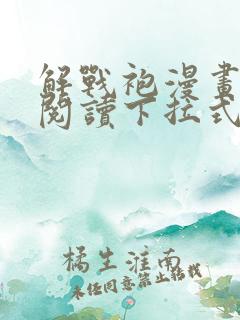 解戰袍漫畫
閱讀下拉式
橘生淮南
未经同意禁止转载